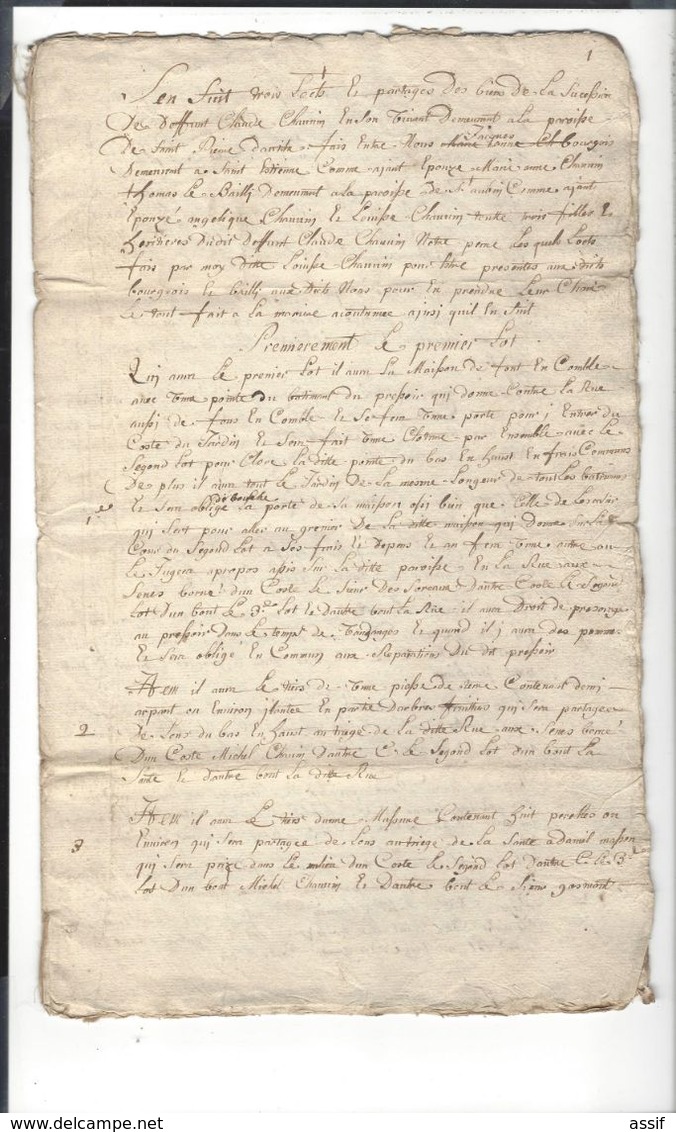 1
Sen suit trois Lots et partages des biens de la sucession
de deffunt Claude Chauvin En son vivant demeurant a la paroisse
de Saint Pierre dautils fais Entre Nous Jacques bourgois
demeurant a Saint Estienne Comme ajant Epouze Marie anne Chauvin
thomas le Bailly demeurant a la paroisse de St aubin Comme ajant
Epouzé angelique Chauvin Et Louisse Chauvin toute trois filles Et
heritieres dudit deffunt Claude Chauvin Notre perre les quels Lots
fais par moy ditte Louisse Chauvin pour Estre presentes aux dits
bourgeois le bailli aux dits Nous pour En prendre Leur Choix
Le tout fait a la maniere acoutumée ainsi quil En suit
Premierement le premier Lot
Qui aura le premier Lot il aura la Maison de font En Comble
avec Une pointe du batiment du pressoir qui donne Contre la Rue
aussi de fons En Comble Et se fera Une porte pour j Entrer du
Costé du Jardin Et sera fait Une Cloture par Ensemble avec le
Segond Lot pour Clore la ditte pointe du bas En haut En frais Communs
De plus il aura tout le Jardin de la mesme Longeur de tous les batimens
1 Et sera obligé de boucher la porte de sa maison osi bien que Celle de
qui sert pour aller au grenier de la ditte maison qui donne sur la
Cour du Segond Lot a ses frais Et depens Et an fera Une autre ou
le Jugera apropos assis sur la ditte paroisse En la Rue aux
Senes borné dun Costé le Sieur des dautre Costé le Segond
Lot Dun bout le 3me Lot Et dautre bout la Rue il aura droit de pressurage
au pressoir dans le temps de Vandanges Et quand il j aura des pommes
Et sera obligé En Commun aux Reparations du dit pressoir
Item il aura le tiers de Une piesse de terre Contenant demi
arpant ou Environ plantée En partie darbres fruittiers qui sera partagée
2 de Lons du bas En haut au triege de la ditte Rue aux Senes borné
Dun Costé Michel Chauvin dautre C. le Segond Lot dun bout la
Sante Et dautre bout la ditte Rue
Item il aura le tiers dune Masure Contenant huit perches ou
Environ qui sera partagée de Lons au triege de la Sante
3 qui sera prize dans le milieu dun Costé le Segond Lot dautre C. le 3me
Lot Dun bout Michel Chauvin Et Dautre bout le Sieur
assif